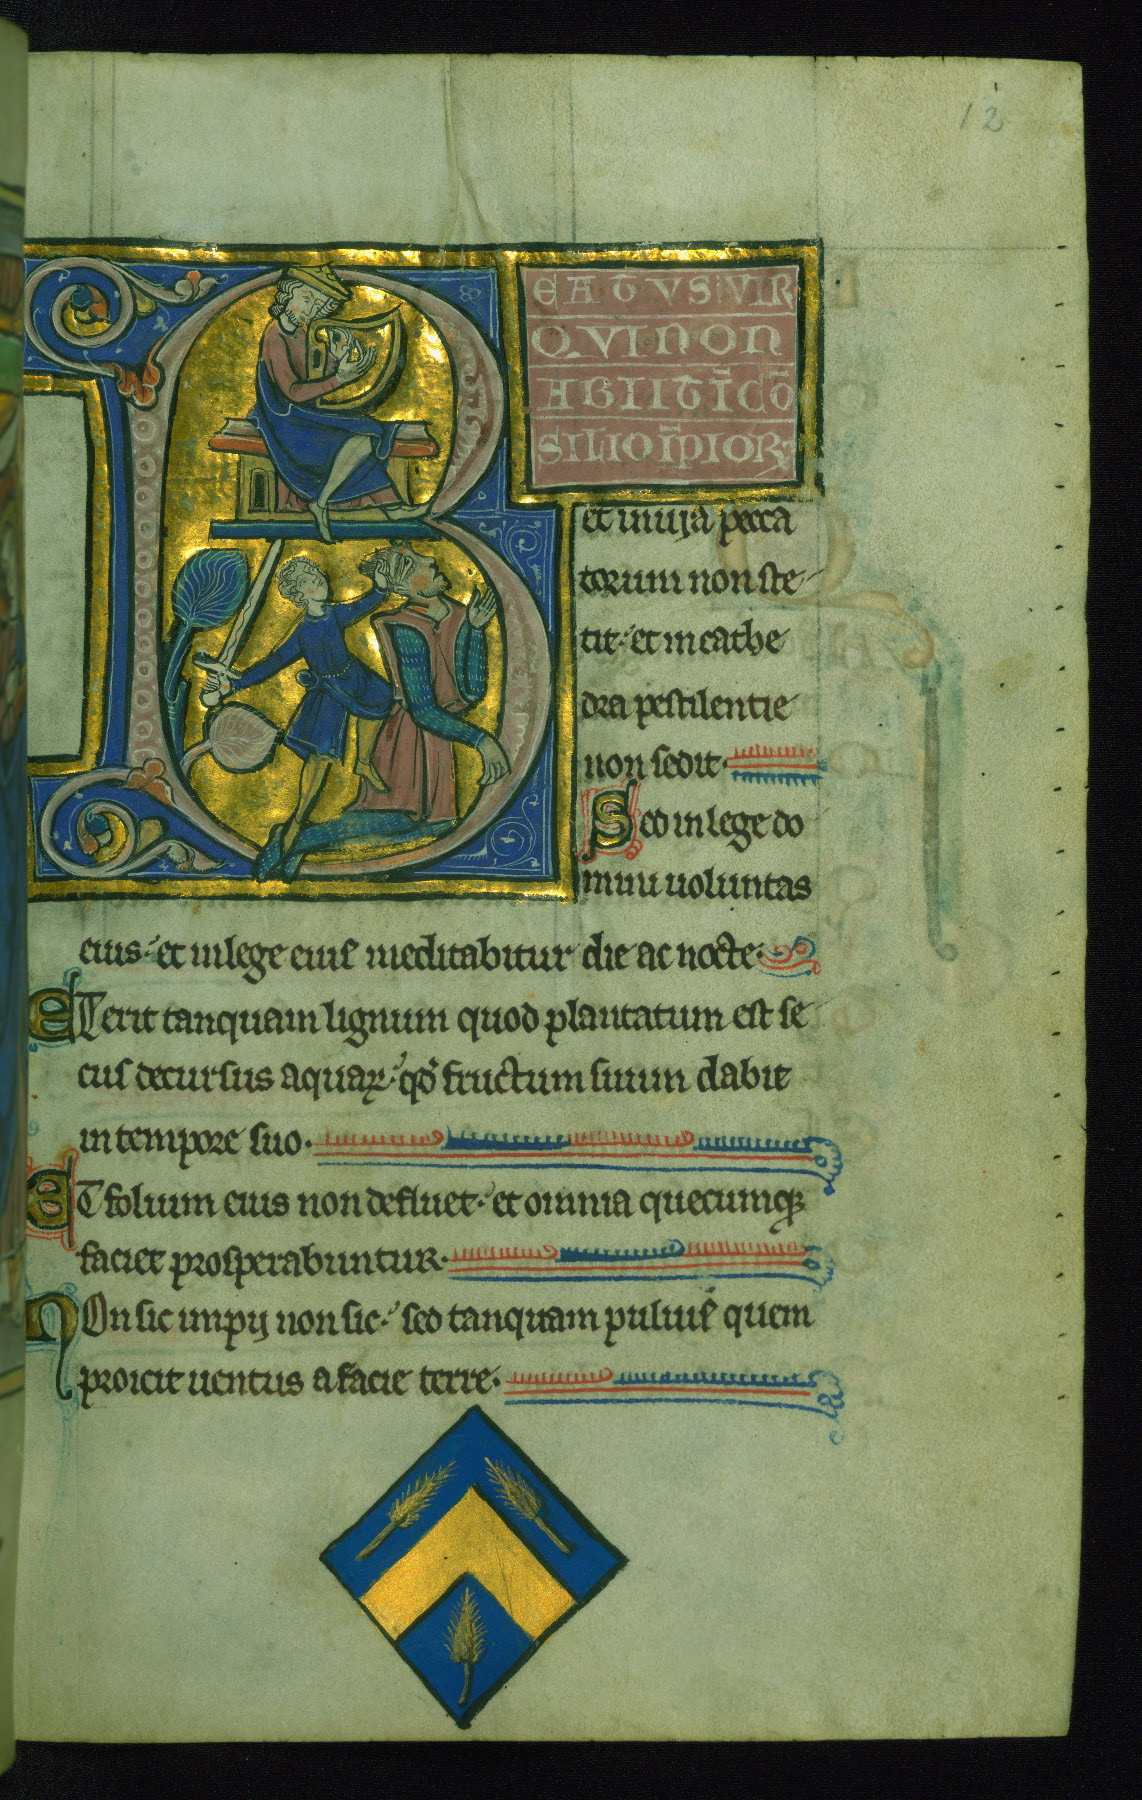 12
B
EATVS VIR
QVI NON
ABIIT ĪCŌ
SILIO ĪPIOR
et in uia pecca
torum non ste
tit. et in cathe
dra pestilentie
non sedit.
Sed in lege do
mini uoluntas
eius. et in lege eius meditabitur die ac nocte.
ET erit tanquam lignum quod plantatum est se
cus decursus aquaꝝ. qđ fructum suum dabit
in tempore suo.
ET folium eius non defluet. et omnia quecumqꝫ
faciet prosperabuntur.
NOn sic impij non sic. sed tanquam puluis quem
proicit uentus a facie terre.